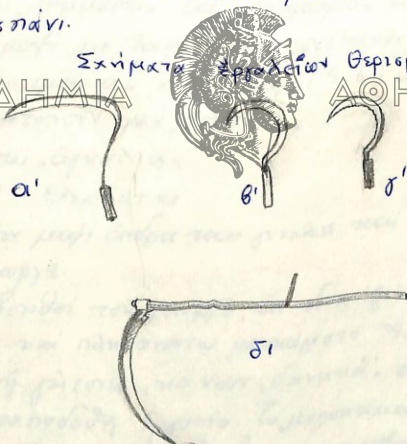 σπάνι.
Σχήματα ἐργαλείων θερισμ
ΔΗΜΙΑ ΑΘΗ
α' β' γ'
δ'